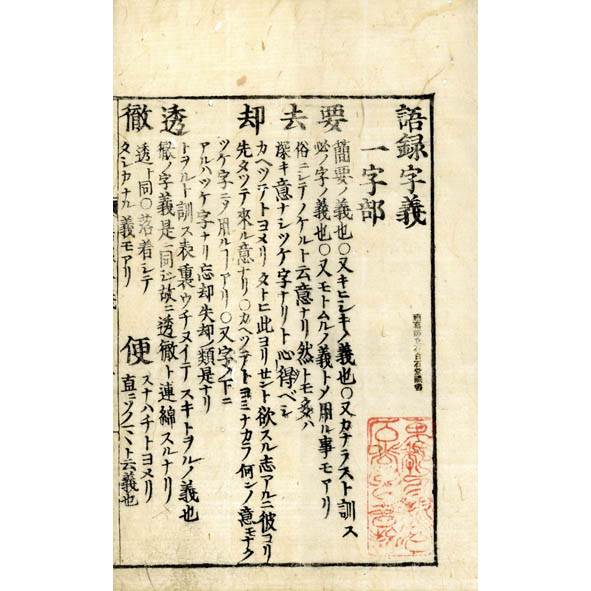 語録字義
一字部
要
簡要ノ義也〇又キヒシキノ義也〇又カナラスト訓ス
必ノ字ノ義也〇又モトムルノ義トメ用ル事モアリ
去
俗ニシテノケルト云意ナリ然トモ多ハ
深キ意ナシツケ字ナリト心得ベシ
却
カヘツテトヨメリタトヒ此ヨリセント欲スル志アルニ彼ヨリ
先タツテ來ル意ナリ〇カヘツテトヨミナカラ何ンノ意モナク
ツケ字ニノ用ルヿアリ〇又字ノ下ニ
アルハツケ字ナリ忘却失却ノ類是ナリ
透
トヲルト訓ス表裏ウチヌイテスキトヲルノ義也
徹ノ字義是ニ同シ故ニ透徹ト連綿スルナリ
徹
透ト同〇落着シテ
タシカナル義モアリ
便
スナハチトヨメリ
直ニソノママト云義也